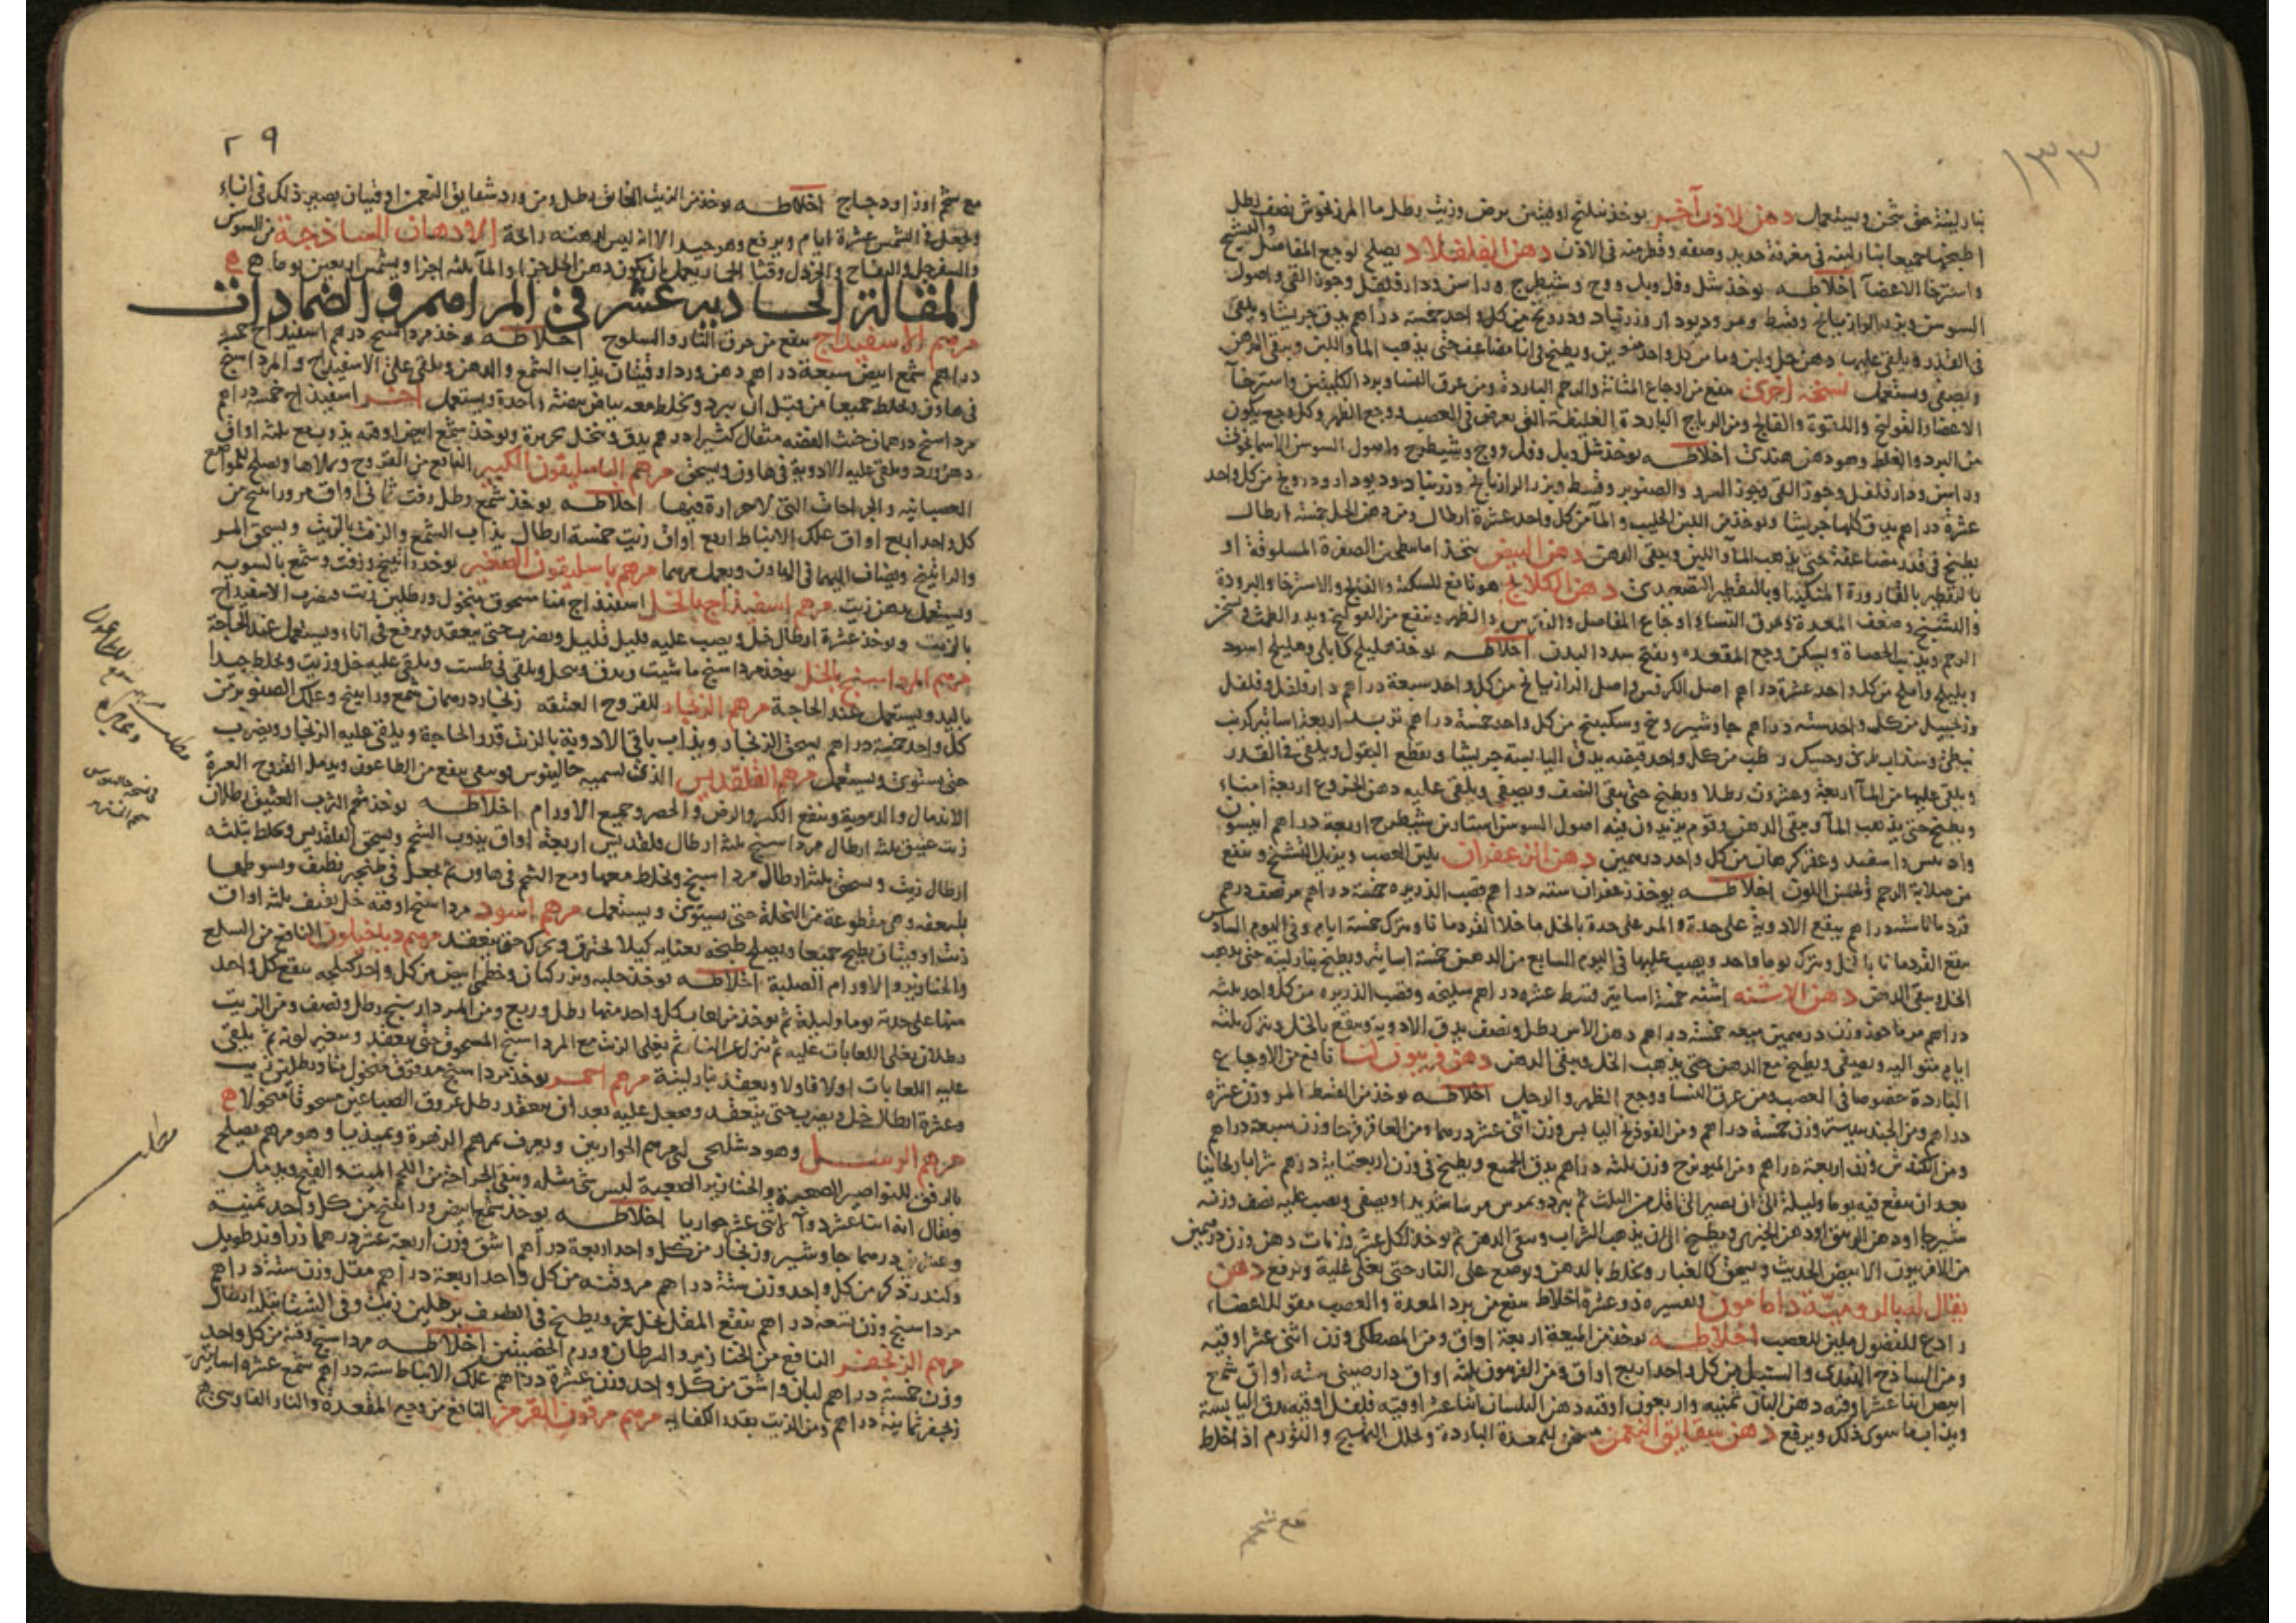 ١٣٣
بنار لينة حتى يثخن ويستعمل دهن لاذن آخر يوخذ سليخ اوقيتين مرض وزيت رطل ما المرزنجوش نصف رطل
اطبخها جميعا بنار لينه في مغرفة حديد وصفه وقطر منه في الاذن دهن الفلفلاد يصلح لوجع المفاصل والتشنج
واسترخا الاعضآ اخلاطه يوخذ شل وفل وبل ووج وشيطرج وراسن ودارفلفل وجوز القي واصول
السوسن وبزر الرازيانج وقسط ومر وديودار وزرنباد ودرونج من كل واحد خمسة دراهم يدق جريشا ويلقى
في القدر ويلقى عليها دهن حل ولبن وما من كل واحد منوين ويطبخ في انا مضاعف حتى يذهب المآ واللبن ويبقى الدهن
ويصفى ويستعمل نسخه اخرى ينفع من اوجاع المثانة والرحم الباردة ومن عرق النسا وبرد الكليتين واسترخآ
الاعضا والقولنج واللقوة والفالج ومن الرياح الباردة الغليظة التي يعرض في العصب ووجع الظهر وكل وجع يكون
من البرد والغلظ وهو دهن هندي اخلاطه يوخذ شل وبل وفل ووج وشيطرج واصول السوسن الاسمانجوني
وراسن ودارفلفل وجوز القي وجوز السرو والصنوبر وقسط وبزر الرازيانج وزرنباد وديودار ودرونج من كل واحد
عشرة دراهم يدق كلها جريشا ويوخذ من اللبن الحليب والمآ من كل واحد عشرة ارطال ومن دهن الحل خمسة ارطال
يطبخ في قدر مضاعفة حتى يذهب المآ واللبن ويبقى الدهن دهن البيض يتخذ اما بطحن الصفرة المسلوقة او
بالتقطير بالقارورة المنكبة او بالتقطير التصعيدي دهن الكلكلانج هو نافع للسكتة والفالج والاسترخا والبرودة
والتشنج وضعف المعدة وعرق النسا واوجاع المفاصل والظهر وينفع من القولنج ويدر الطمث ويسخن
الرحم ويذيب الحصاة ويسكن وجع المقعده ويفتح سدد البدن اخلاطه يوخذ هليلج كابلي وهليلج اسود
وبليلج واملج من كل واحد عشرة دراهم اصل الكرفس واصل الرازيانج من كل واحد سبعة دراهم دارفلفل وفلفل
وزنجبيل من كل واحد سته دراهم جاوشير ووج وسكبينج من كل واحد خمسة دراهم تربد اربعة اساتير كرنب
نبطي وسذاب طري وحسك رطب من كل واحد قبضه يدق اليابسة جريشا ويقطع البقول ويلقى في القدر
ويلقى عليها من المآ اربعة وعشرون رطلا ويطبخ حتى يبقى النصف ويصفى ويلقى عليه دهن الخروع اربعة امناء
ويطبخ حتى يذهب المآ ويبقى الدهن وقوم يزيدون فيه اصول السوسن استارين شيطرج اربعة دراهم انيسون
وعقرقرحا من كل واحد درهمين دهن الزعفران يلين العصب ويزيل التشنج وينفع
من صلابة الرحم ويحسن اللون اخلاطه يوخذ زعفران سته دراهم قصب الذريره خمسة دراهم مر نصف درهم
قردمانا ستة دراهم ينقع الادوية على حدة والمر على حدة بالخل ما خلا القردمانا ويترك خمسة ايام وفي اليوم السادس
ينقع القردمانا بالخل ويترك يوما واحد ويصب عليها في اليوم السابع من الدهن خمسة اساتير ويطبخ بنار لينة حتى يذهب
الخل ويبقى الدهن دهن الاشنه اشنه خمسة اساتير قسط عشره دراهم سليخه وقصب الذريره من كل واحد ثلثه
دراهم مرماحوز وزن درهمين ميعه خمسة دراهم دهن الاس رطل ونصف يدق الادوية وينقع بالخل ويترك ثلثة
ايام متواليه ويصفى ويطبخ مع الدهن حتى يذهب الخل ويبقى الدهن دهن فربيون لنا نافع من الاوجاع
الباردة خصوصا في العصب ومن عرق النسا ووجع الظهر والرجل اخلاطه يوخذ من القسط المر وزن عشرة
دراهم ومن الجندبيدستر وزن خمسة دراهم ومن الفوذنج اليابس وزن اثنى عشر درهما ومن العاقرقرحا وزن سبعة دراهم
ومن الكندش وزن اربعة دراهم ومن الميويزج وزن ثلثه دراهم يدق الجميع ويطبخ في وزن اربعماية درهم شرابا ريحانيا
بعد ان ينقع فيه يوما وليلة الى ان يصير الى اقل من الثلث ثم يبرد ويمرس مرسا شديدا ويصفى ويصب عليه نصف وزنه
شيرجا او دهن الزيبق او دهن الخيري ويطبخ الى ان يذهب الشراب ويبقى الدهن ثم يوخذ لكل عشر وزنات دهن وزن درهمين
من الافربيون الابيض الحديث ويسحق كالغبار ويخلط بالدهن ويوضع على النار حتى يغلي غلية ويرفع دهن
يقال له بالروميّة داطامون وتفسيره ذو عشرة اخلاط ينفع من برد المعدة والعصب مقو للاعضاء
رادع للفضول ملين للعصب اخلاطه يوخذ من الميعة اربعة اواق ومن المصطكى وزن اثنى عشر اوقيه
ومن الساذج الهندي والسنبل من كل واحد اربع اواق ومن الفربيون ثلثه اواق دارصيني سته اواق شمع
ابيض اثنا عشر اوقيه دهن البان ثمنيه واربعون اوقيه دهن البلسان اثنا عشر اوقيه فلفل اوقيه يدق اليابسة
ويذاب ما سوى ذلك ويرفع دهن شقايق النعمن مسخن للمعدة الباردة ويحلل التهبيج والتورم اذا خلط
مع شحم
٢٩
مع شحم اوز او دجاج اخلاطه يوخذ من الزيت الخالص رطل ومن ورد شقايق النعمن اوقيتان يصير ذلك في اناء
ويجعل في الشمس عشرة ايام ويرفع وهو جيد الا انه ليس لدهنه راحة الادهان الساذجة من السوس
والسفرجل والتفاح والخردل وقثا الحمار يعمل ان يكون دهن الحل جزا والمآ ثلثه اجزا ويشمس اربعين يوما هـ هـ
المقالة الحاديه عشر في المراهم والضمادات
مرهم الاسفيداج ينفع من حرق النار والسلوخ اخلاطه يوخذ مرداسنج درهم اسفيداج خمسة
دراهم شمع ابيض سبعة دراهم دهن ورد اوقيتان يذاب الشمع والدهن ويلقى على الاسفيداج والمرداسنج
في هاون ويخلط جميعا من قبل ان يبرد ويخلط معه بياض بيضة واحدة ويستعمل اخر اسفيداج خمسه دراهم
مرداسنج درهمان خبث الفضه مثقال كثيرا درهم يدق وينخل بحريرة ويوخذ شمع ابيض اوقيه يذوب مع ثلثه اواق
دهن ورد ويلقى عليه الادوية في هاون ويسحق مرهم الباسليقون الكبير النافع من القروح ويملاها ويصلح للمواضع
العصبانيه والجراحات التي لا حرارة فيها اخلاطه يوخذ شمع رطل زفت ثماني اواق مر وراتينج من
كل واحد اربع اواق علك الانباط اربع اواق زيت خمسة ارطال يذاب الشمع والزفت بالزيت ويسحق المر
والراتينج ويضاف اليهما في الهاون ويعمل مرهما مرهم باسليقون الصغير يوخذ راتينج وزفت وشمع بالسويه
ويستعمل بدهن زيت مرهم اسفيداج بالخل اسفيداج منا مسحوق منخول ورطلين زيت يضرب الاسفيداج
بالزيت ويوخذ عشرة ارطال خل ويصب عليه قليل قليل ويضرب حتى ينعقد ويرفع في اناء ويستعمل عند الحاجة
مرهم المرداسنج بالخل يوخذ مرداسنج ما شيت ويدق وينخل ويلقى في طست ويلقى عليه خل وزيت ويخلط جيدا
باليد ويستعمل عند الحاجة مرهم الزنجار للقروح العتيقه زنجار درهمان شمع وراتينج وعلك الصنوبر من
كل واحد خمسة دراهم يسحق الزنجار ويذاب باقي الادوية بالزيت قدر الحاجة ويلقى عليه الزنجار ويضرب
حتى يستوي ويستعمل مرهم القلقديس الذي يسميه جالينوس ينفع من الطاعون ويدمل القروح العسرة
الاندمال والدموية وينفع الكسر والرض والحصر وجميع الاورام اخلاطه يوخذ شحم الثرب العتيق رطلان
زيت عتيق ثلثه ارطال مرداسنج ثلثة ارطال قلقديس اربعة اواق يذوب الشحم ويسحق القلقديس ويخلط بثلثه
ارطال زيت ويسحق ثلثة ارطال مرداسنج ويخلط معها ومع الشحم في هاون ثم يجعل في طنجير نظيف ويسوطها
بسعفه وهي مقطوعة من النخلة حتى يستوي ويستعمل مرهم اسود مرداسنج اوقيه خل ثقيف ثلثه اواق
زيت اوقيتان يطبخ جميعا ويصلح طبخه بعنايه كيلا يحترق ويحرك حتى ينعقد مرهم دياخيلون النافع من السلع
والخنازير والاورام الصلبة اخلاطه يوخذ حلبه وبزر كتان وخطمي ابيض من كل واحد كيلجه ينقع كل واحد
منها على حدة يوما وليلة ثم يوخذ من لعاب كل واحد منها رطل وربع ومن المرداسنج رطل ونصف ومن الزيت
رطلان يغلى اللعابات عليه ثم ينزل عن النار ثم يغلى الزيت مع المرداسنج المسحوق حتى ينعقد ويتغير لونه ثم يلقى
عليه اللعابات اولا فاولا ويعقد بنار لينة مرهم احمر يوخذ مرداسنج مدقوق منخول منا ورطلين زيت
وعشرة ارطال خل ويضرب حتى ينعقد ويجعل عليه بعد ان ينعقد رطل عروق الصباغين مسحوقا منخولا هـ
مرهم الرسل وهو دشليحى اي مرهم الحواريين ويعرف بمرهم الزهرة وبمنديا وهو مرهم يصلح
بالرفق للنواصير الصعبة والخنازير الصعبة ليس شي مثله وينقي الجراحة من اللحم الميت والقيح ويدمل
ويقال انه اثنا عشر دوآ لاثني عشر حواريا اخلاطه يوخذ شمع ابيض وراتينج من كل واحد ثمنية
وعشرين درهما جاوشير وزنجار من كل واحد اربعة دراهم اشق وزن اربعة عشر درهما زراوند طويل
وكندر ذكر من كل واحد وزن ستة دراهم مر وقنه من كل واحد اربعة دراهم مقل وزن ستة دراهم
مرداسنج وزن تسعة دراهم ينقع المقل بخل خمر ويطبخ في الصيف برطلين زيت وفي الشتا بثلثه ارطال
مرهم الزنجفر النافع من الخنازير والسرطان وورم الخصيتين اخلاطه مرداسنج وقنه من كل واحد
وزن خمسة دراهم لبان واشق من كل واحد وزن عشرة دراهم علك الانباط سته دراهم شمع عشره اساتير
زنجفر ثمانية دراهم ومن الزيت بقدر الكفايه مرهم مرقون القرمز النافع من وجع المقعدة والنار الفارسي هـ
مطلب
مطلب